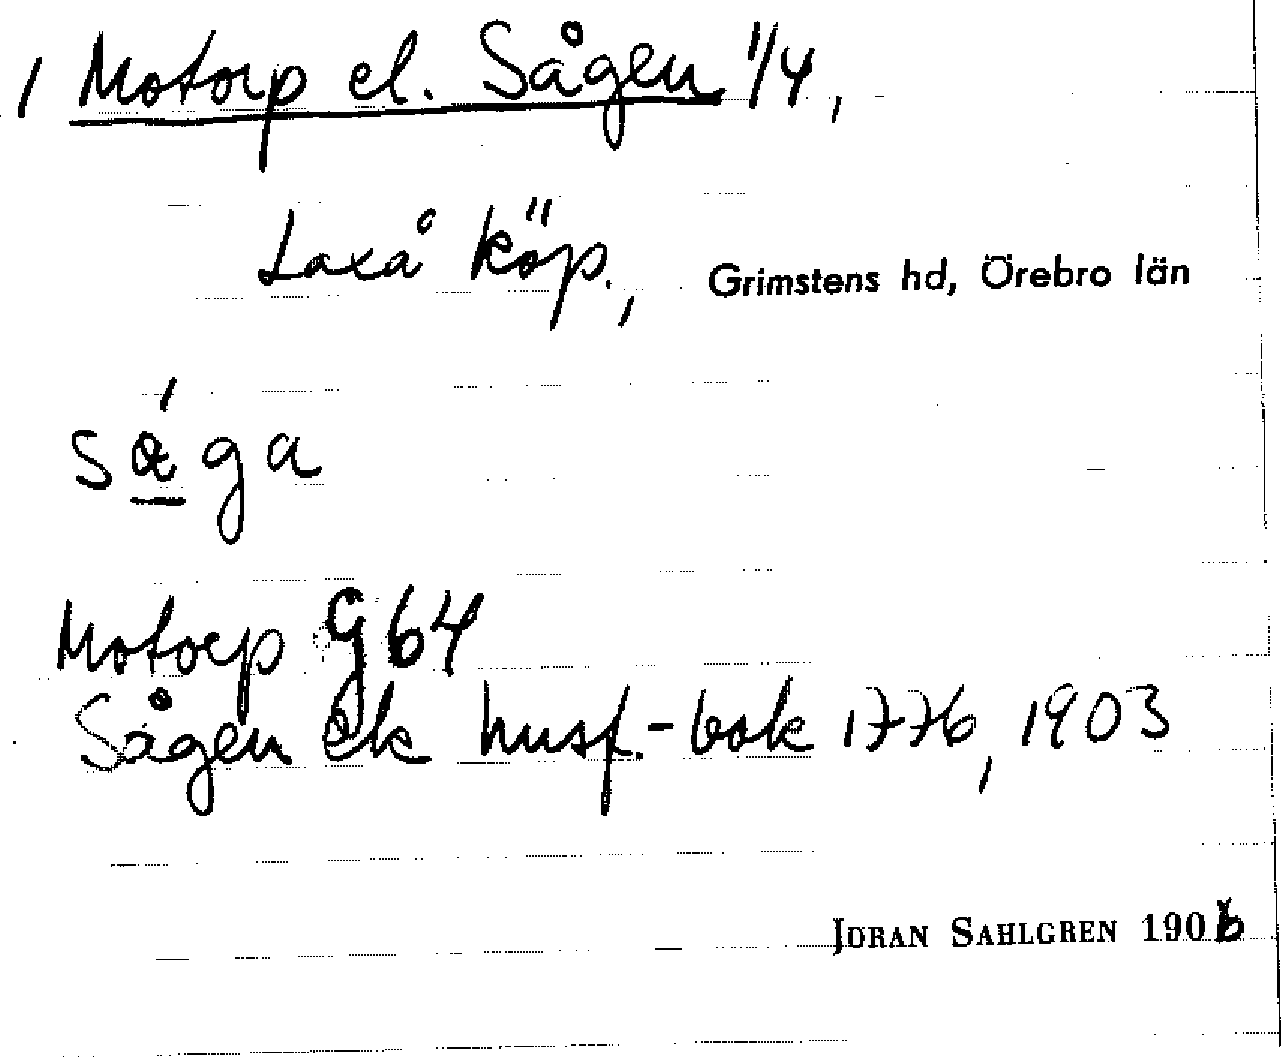 / Motorp el. Sågen 1/4,
Laxå köp., Grimstens hd, Örebro län
sǽga
Motorp G64
Sågen Ek husf.-bok 1776, 1903
JÖRAN SAHLGREN 1906